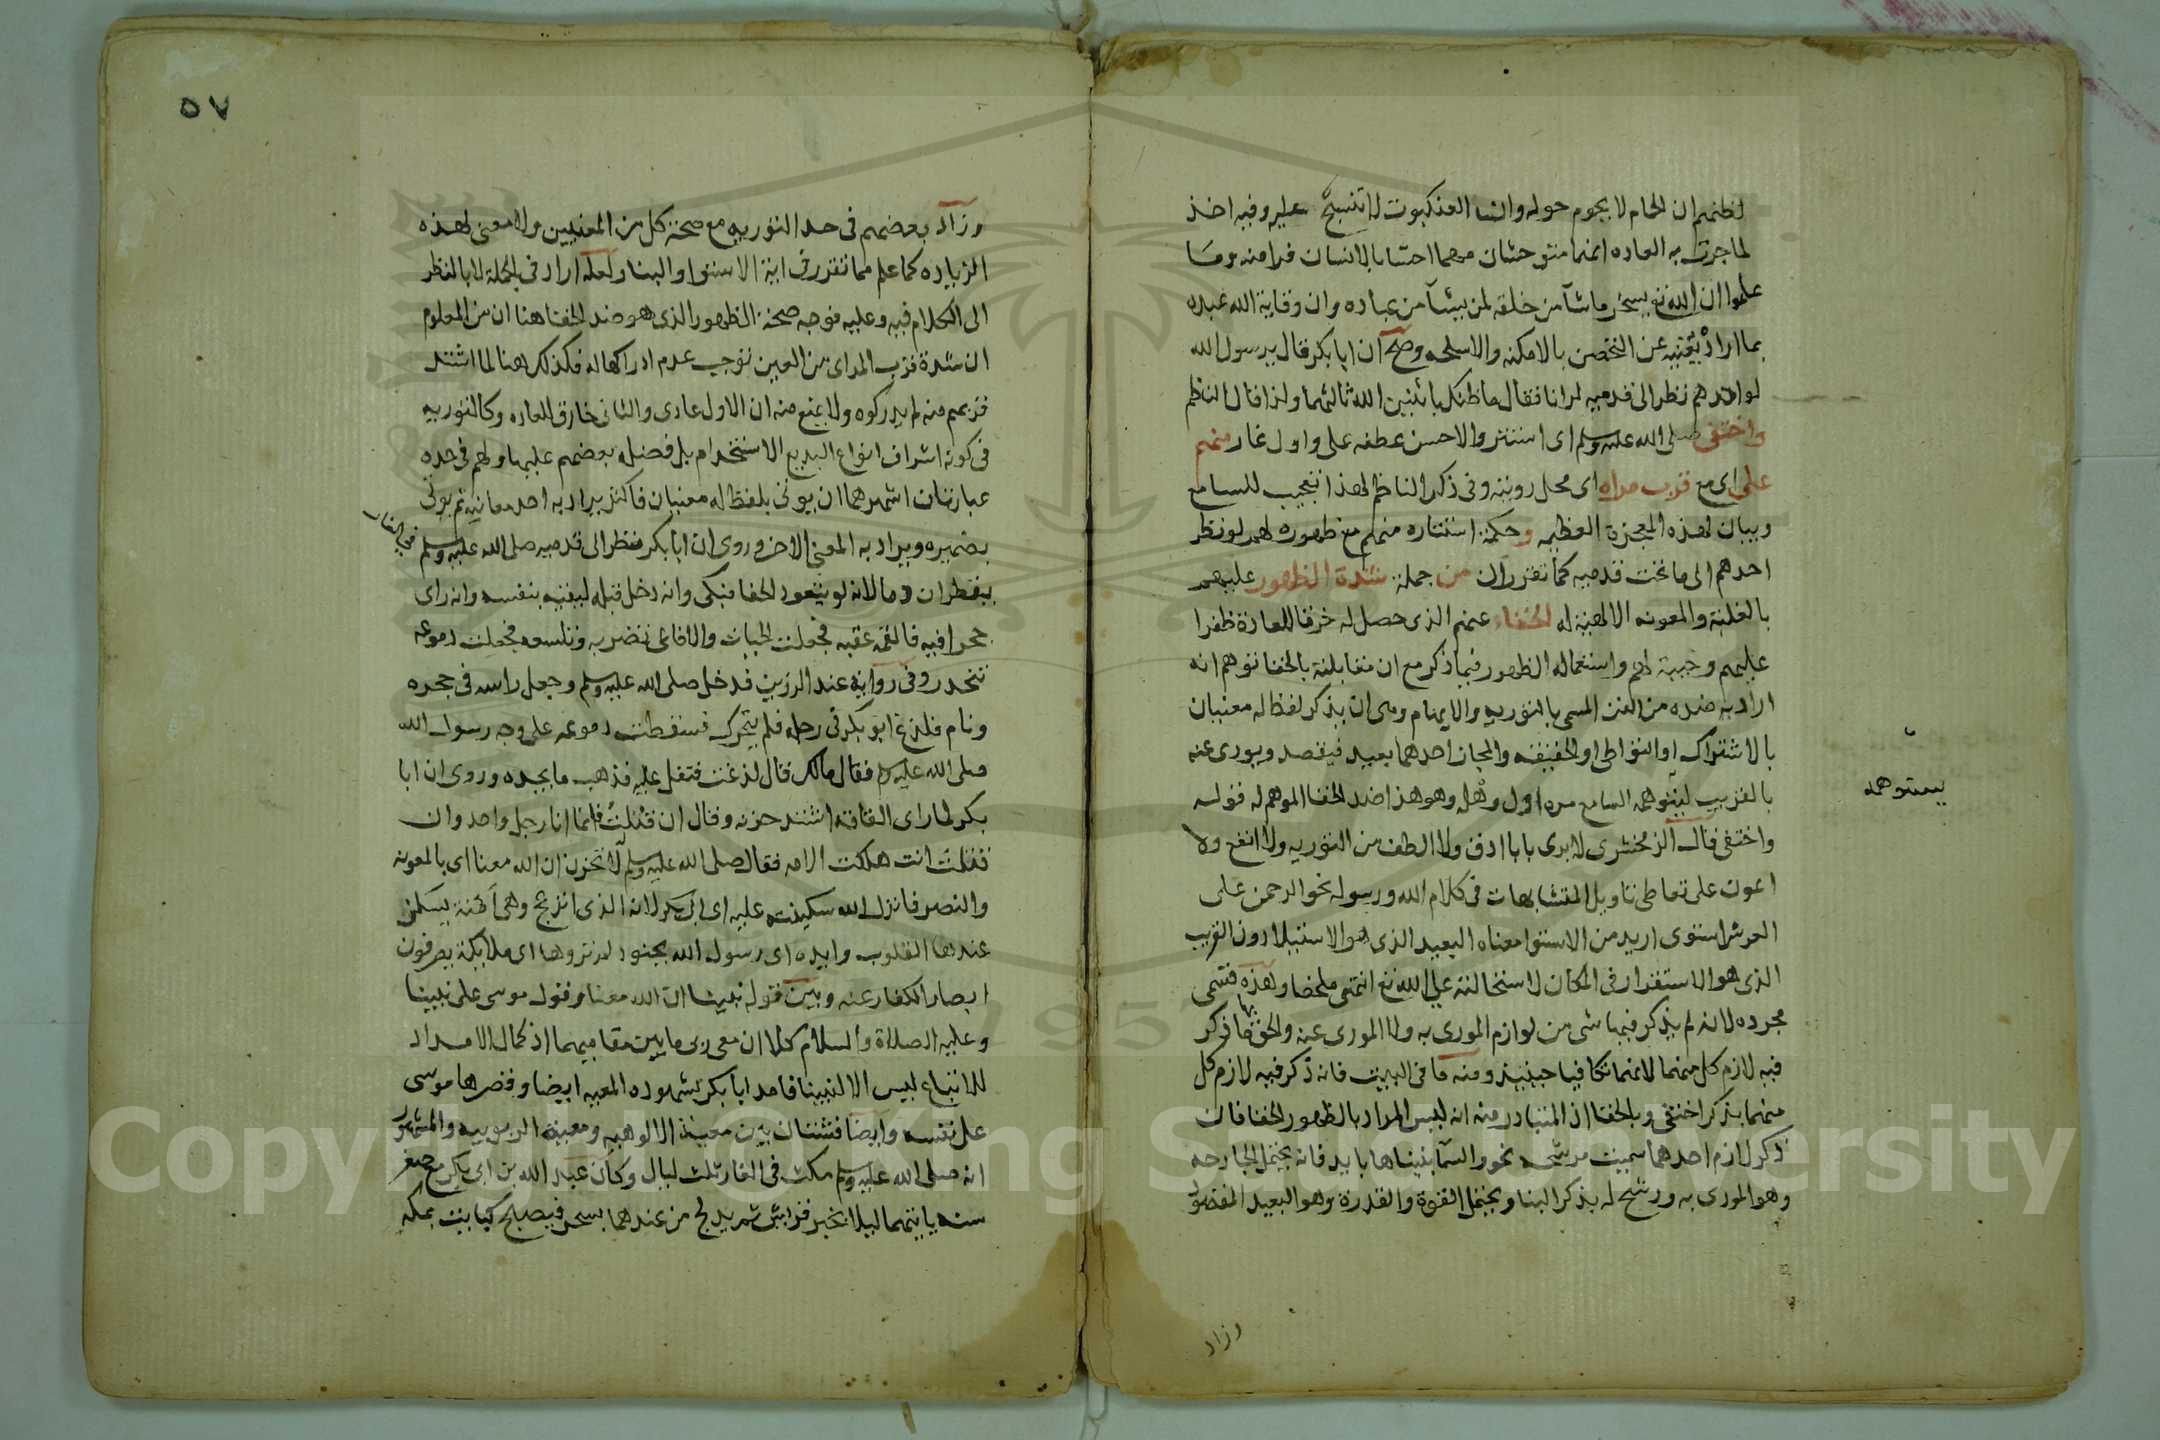 لظنهم ان الحمام لا يحوم حوله وان العنكبوت لا تنسج عليه وفيه اخذ
لما جرت به العاده انهما متوحشان مهما احسا بالانسان فرا منه وما
علموا ان الله تع يسخر ما شآ من خلقه لمن يشآ من عباده وان وقاية الله عبده
بما اراد تغنيه عن التحصن بالامكنه والاسلحه وصح ان ابا بكر قال يرسول الله
لو احدهم نظر الى قدميه لرانا فقال ما ظنك باثنين الله ثالثهما ولذا قال الناظم
واختفى صلى الله عليه وسلم اى استتر والاحسن عطفه على واول غار منهم
على اى مع قرب مراه اى محل رويته وفى ذكر الناظم لهذا تعجيب للسامع
وبيان لهذه المعجزة العظيمه وحكمة استتاره منهم مع ظهوره لهم لو نظر
احدهم الى ما تحت قدميه كما تقرر ان من جملة شدة الظهور عليهم
بالغلبة والمعونه الالهية له الخفاء عنهم الذى حصل له خرقا للعادة ظفرا
عليهم وخيبة لهم واستعماله الظهور فيما ذكر مع ان مقابلته بالخفا توهم انه
اراد به ضده من الفن المسمى بالتوريه والايهام وهى ان يذكر لفظ له معنيان
بالاشتراك او التواطى او الحقيقه والمجاز احدهما بعيد فيقصد ويورى عنه
بالقريب ليتوهمه السامع من اول وهلة وهو هنا ضد الخفا الموهم له قوله
يستوهمه
واختفى قال الزمخشرى لا يرى بابا ادق ولا الطف من التوريه ولا انفع ولا
اعون على تعاطى تاويل المتشابهات فى كلام الله ورسوله نحو الرحمن على
العرش استوى اريد من الاستوا معناه البعيد الذى هو الاستيلا دون القريب
الذى هو الاستقرار فى المكان لاستحالته على الله تع انتهى ملخصا وهذه تسمى
مجرده لانه لم يذكر فيها شى من لوازم المورى به ولا المورى عنه والحق بها ما ذكر
فيه لازم كل منهما لانهما تكافيا حينيذ ومنه ما فى البيت فانه ذكر فيه لازم كل
منهما بذكر اختفى وبالخفا اذ المتبادر منه انه ليس المراد بالظهور الخفا فان
ذكر لازم احدهما سميت مرشحه نحو والسمآ بنيناها بايد فانه يحتمل الجارحه
وهو المورى به ورشح له بذكر البنا ويحتمل القوة والقدرة وهو البعيد المقصود
وزاد
٥٧
وزاد بعضهم فى حد التوريه مع صحة كل من المعنيين ولا معنى لهذه
الزياده كما علم مما تقرر فى اية الاستوا والبنا ولعله اراد فى الجملة لا بالنظر
الى الكلام فيه وعليه فوجه صحة الظهور الذى هو ضد الخفا هنا ان من المعلوم
ان شدة قرب المراى من العين توجب عدم ادراكها له فكذلك هنا لما اشتد
قربهم منه لم يدركوه ولا يمنع منه ان الاول عادى والثانى خارق للعاده وكالتوريه
فى كونه اشراف انواع البديع الاستخدام بل فضله بعضهم عليها ولهم فى حده
عبارتان اشهرهما ان يوتى بلفظ له معنيان فاكثر يراد به احد معانيه ثم يوتى
بضميره ويراد به المعنى الاخر وروى ان ابا بكر نظر الى قدميه صلى الله عليه وسلم
فى الغار
يقطران دما لانه لو يتعود الحفا فبكى وانه دخل قبله ليقيه بنفسه وانه راى
جحرا فيه فالقمه عقبه فجعلت الحيات والافاعى تضربه وتلسعه فجعلت دموعه
تتحدر وفى رواية عند الرزين فدخل صلى الله عليه وسلم وجعل راسه فى حجره
ونام فلدغ ابو بكر فى رجله فلم يتحرك فسقطت دموعه على وجه رسول الله
صلى الله عليه وسلم فقال مالك قال لدغت فتفل عليه فذهب ما يجده وروى ان ابا
بكر لما راى القافة اشتد حزنه وقال ان قتلت فانما انا رجل واحد وان
قتلت انت هلكت الامه فقال صلى الله عليه وسلم لا تحزن ان الله معنا اى بالمعونه
والنصر فانزل الله سكينته عليه اى ابى بكر لانه الذى انزعج وهى امنة يسكن
عندها القلوب وايده اى رسول الله بجنود لم تروها اى ملايكة يصرفون
ابصار الكفار عنه وبين قوله نبينا ان الله معنا وقول موسى على نبينا
وعليه الصلاة والسلام كلا ان معى ربى ما يبين مقاميهما اذ كمال الامداد
للاتباع ليس الا لنبينا فامد ابا بكر بشهوده المعيه ايضا وقصرها موسى
على نفسه وايضا فشتان بين معية الالوهيه ومعية الربوبيه والمشهور
انه صلى الله عليه وسلم مكث فى الغار ثلث ليال وكان عبد الله بن ابى بكر مع صغر
سنه ياتيهما ليلا بخبر قريش ثم يدلج من عندهما بسحر فيصبح كبايت بمكه